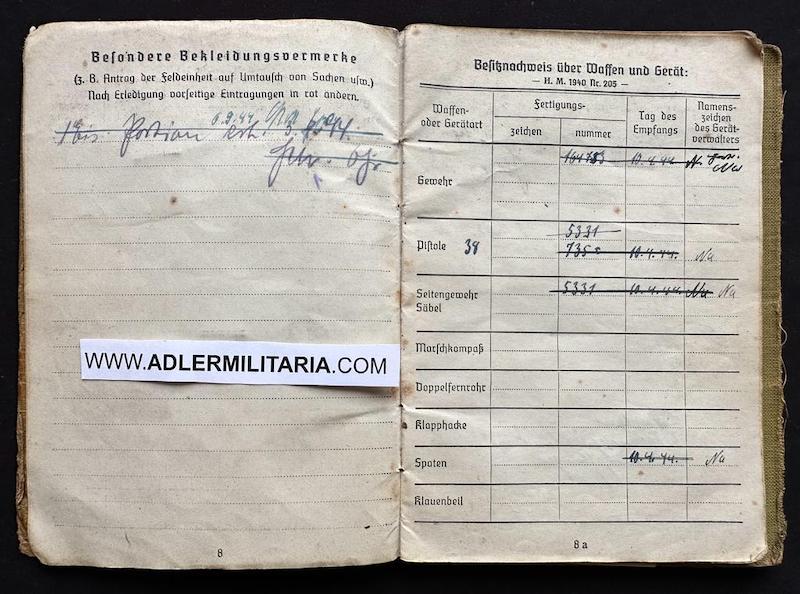 Besondere Bekleidungsvermerke
(z. B. Antrag der Feldeinheit auf Umtausch von Sachen usw.)
Nach Erledigung vorseitige Eintragungen in rot ändern.
6.9.44
Portion erh.
WWW.ADLERMILITARIA.COM
8
Besitznachweis über Waffen und Gerät:
— H. M. 1940 Nr. 205 —
Waffen- oder Gerätart
Fertigungs-
zeichen
nummer
Tag des Empfangs
Namens- zeichen des Gerät- verwalters
Gewehr 10.4.44.
5331
Pistole 38 10.4.44. Na
Seitengewehr 5331 10.4.44. Na Na
Säbel
Marschkompaß
Doppelfernrohr
Klapphacke
Spaten 10.4.44. Na
Klauenbeil
8 a